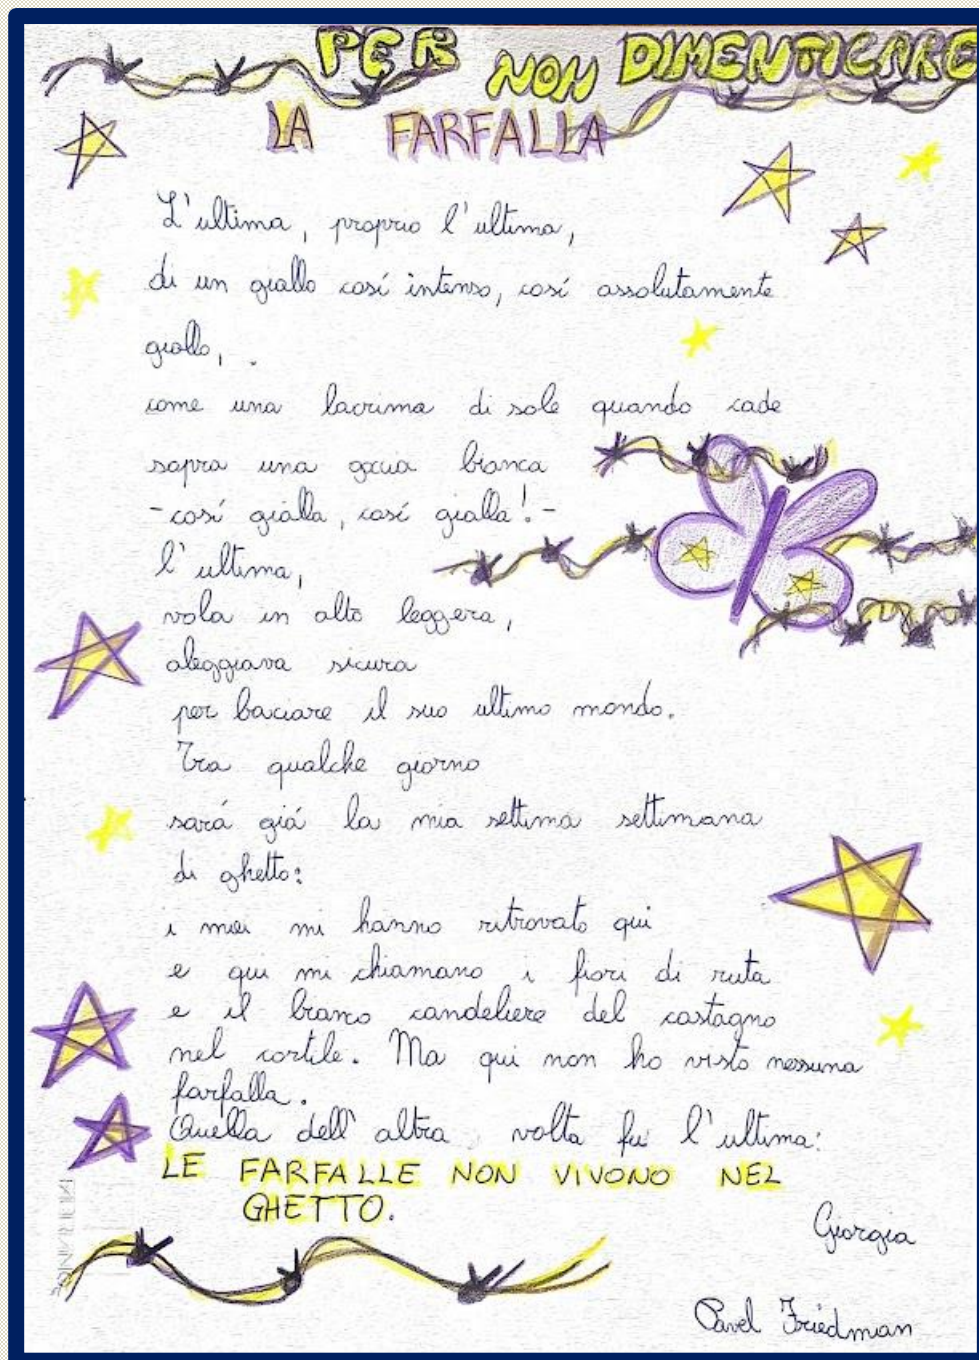 PER NON DIMENTICARE
LA FARFALLA
L'ultima, proprio l'ultima,
di un giallo cosí intenso, cosí assolutamente
giallo,
come una lacrima di sole quando cade
sopra una roccia bianca
-cosí gialla, cosí gialla!-
l'ultima,
vola in alto leggera,
aleggiava sicura
per baciare il suo ultimo mondo.
Tra qualche giorno
sará giá la mia settima settimana
di ghetto:
i miei mi hanno ritrovato qui
e qui mi chiamano i fiori di ruta
e il bianco candeliere del castagno
nel cortile. Ma qui non ho visto nessuna
farfalla.
Quella dell'altra volta fu l'ultima:
LE FARFALLE NON VIVONO NEL
GHETTO.
Giorgia
Pavel Friedman